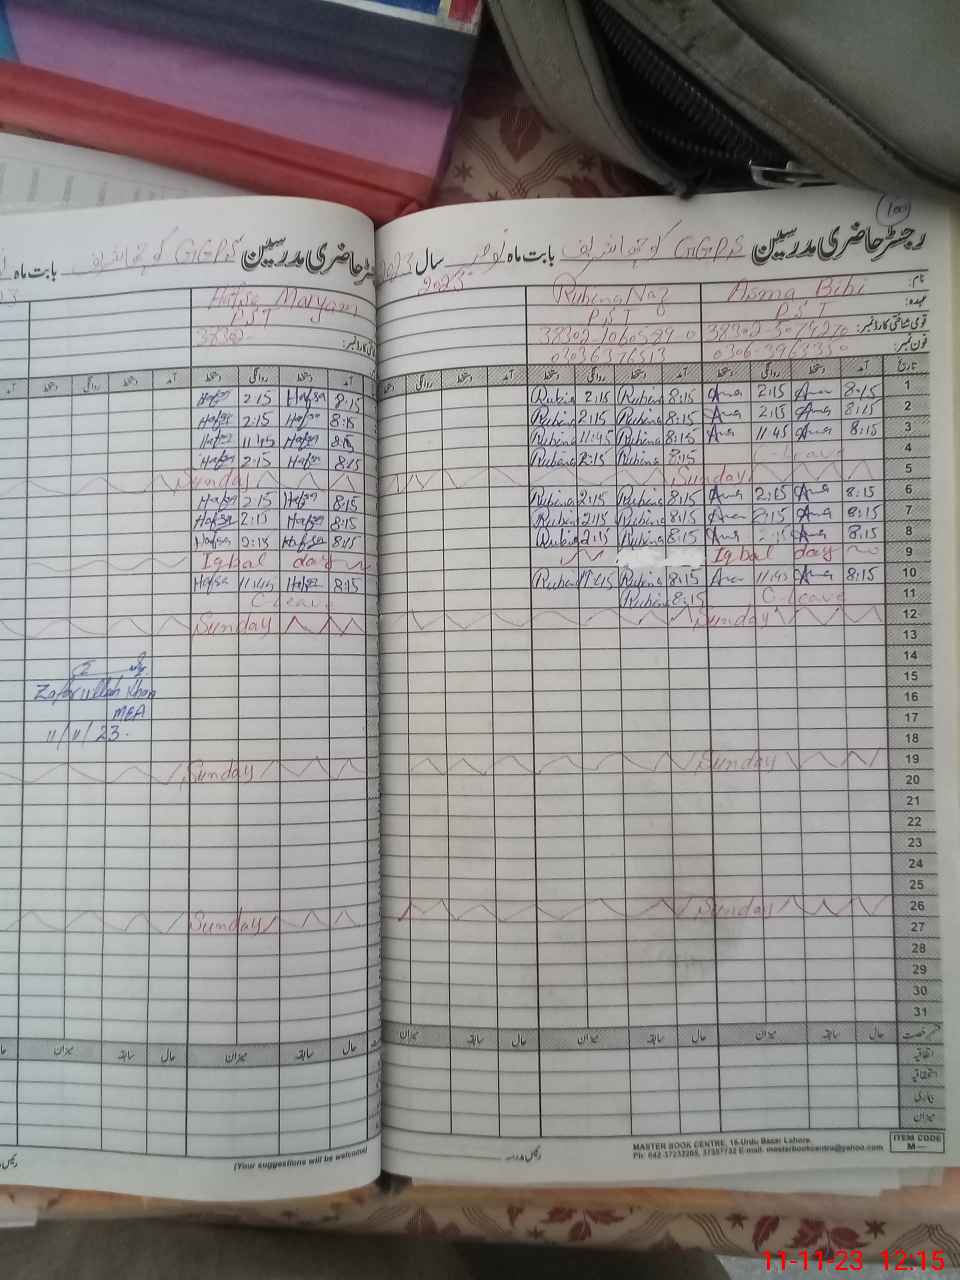 رجسٹر حاضری مدرسین GGPS کوچھہ شریف بابت ماہ نومبر سال 2023
100
نام: Asma Bibi Rubina Naz
عہدہ: P.S.T P.S.T
قومی شناختی کارڈ نمبر:
فون نمبر:
تاریخ آمد دستخط روانگی دستخط آمد دستخط روانگی دستخط آمد دستخط روانگی دستخط
1 8:15 Asma 2:15 Asma 8:15 Rubina 2:15 Rubina
2 8:15 Asma 2:15 Asma 8:15 Rubina 2:15 Rubina
3 8:15 Asma 11:45 Asma 8:15 Rubina 11:45 Rubina
4 C-Leave 8:15 Rubina 2:15 Rubina
5 Sunday
6 8:15 Asma 2:15 Asma 8:15 Rubina 2:15 Rubina
7 8:15 Asma 2:15 Asma 8:15 Rubina 2:15 Rubina
8 8:15 Asma 2:15 Asma 8:15 Rubina 2:15 Rubina
9 Iqbal day
10 8:15 Asma 11:45 Asma 8:15 Rubina 11:45 Rubina
11 C-Leave 8:15 Rubina
12 Sunday
13
14
15
16
17
18
19 Sunday
20
21
22
23
24
25
26 Sunday
27
28
29
30
31
حال سابقہ میزان حال سابقہ میزان حال سابقہ میزان
اتفاقیہ
استحقاقیہ
بیماری
میزان
رئیس مدرسہ
MASTER BOOK CENTRE, 16-Urdu Bazar Lahore.
Ph: 042-37232265, 37357732 E-mail: masterbookcentre@yahoo.com
ITEM CODE
M—
رجسٹر حاضری مدرسین GGPS کوچھہ شریف بابت ماہ
Hafsa Maryam
P.S.T
38302
آمد دستخط روانگی دستخط آمد دستخط روانگی دستخط آمد
8:15 Hafsa 2:15 Hafsa
8:15 Hafsa 2:15 Hafsa
8:15 Hafsa 11:45 Hafsa
8:15 Hafsa 2:15 Hafsa
Sunday
8:15 Hafsa 2:15 Hafsa
8:15 Hafsa 2:15 Hafsa
8:15 Hafsa 2:15 Hafsa
Iqbal day
8:15 Hafsa 11:45 Hafsa
C-Leave
Sunday
Zafarullah Khan
MEA
11/11/23.
Sunday
Sunday
حال سابقہ میزان حال سابقہ میزان حال
(Your suggestions will be welcome)
11-11-23 12:15